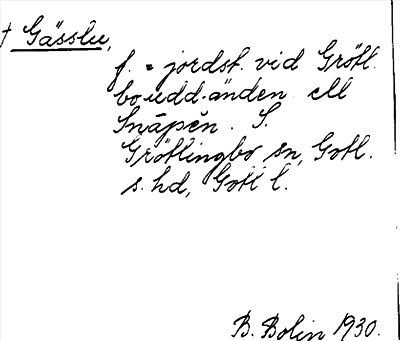 † Gässlu,
f. = jordst. vid Grötl.
bo-udd-änden ell
Snäpen. S.
Grötlingbo sn, Gotl.
s. hd, Gotl l.
B. Bolin 1930.